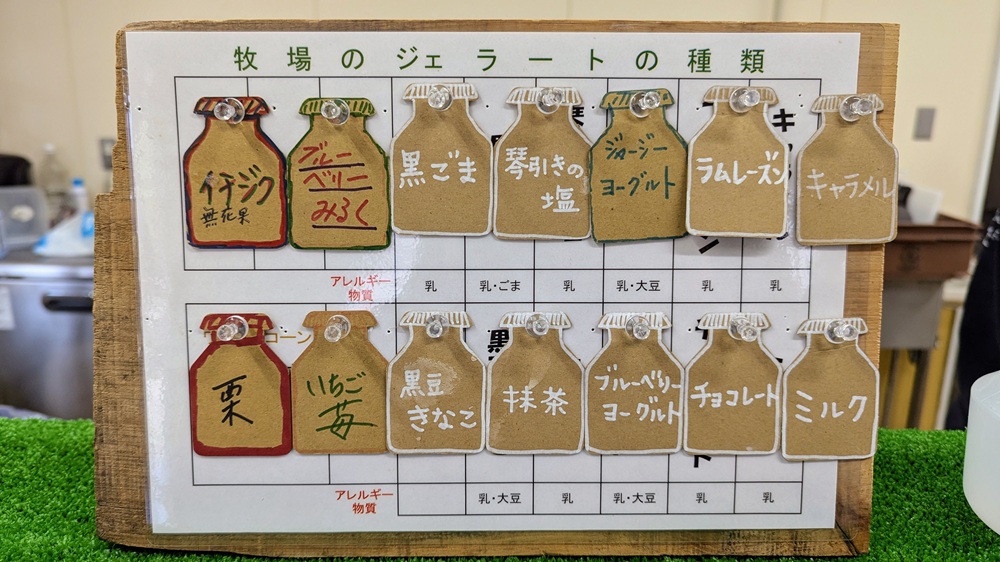 牧場のジェラートの種類
イチジク
無花果
ブルー
ベリー
みるく
黒ごま
琴引きの
塩
ジャージー
ヨーグルト
ラムレーズン
キャラメル
アレルギー
物質
乳
乳・ごま
乳
乳・大豆
乳
乳
コーン
栗
いちご
苺
黒豆
きなこ
抹茶
ブルーベリー
ヨーグルト
チョコレート
ミルク
アレルギー
物質
乳・大豆
乳
乳・大豆
乳
乳